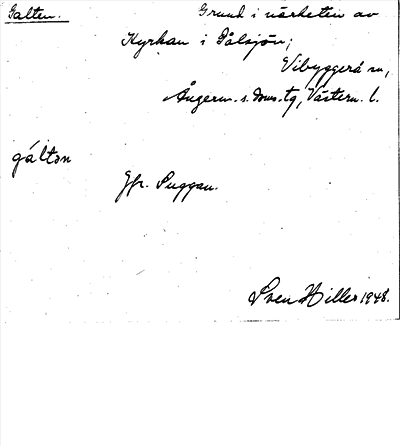 Galten. Grund i närheten av
Kyrkan i Pålsjön;
Vibyggerå sn,
Ångerm. s. dms. tg, Västern. l.
gálton
Jfr. Suggan.
Sven Hiller 1948.